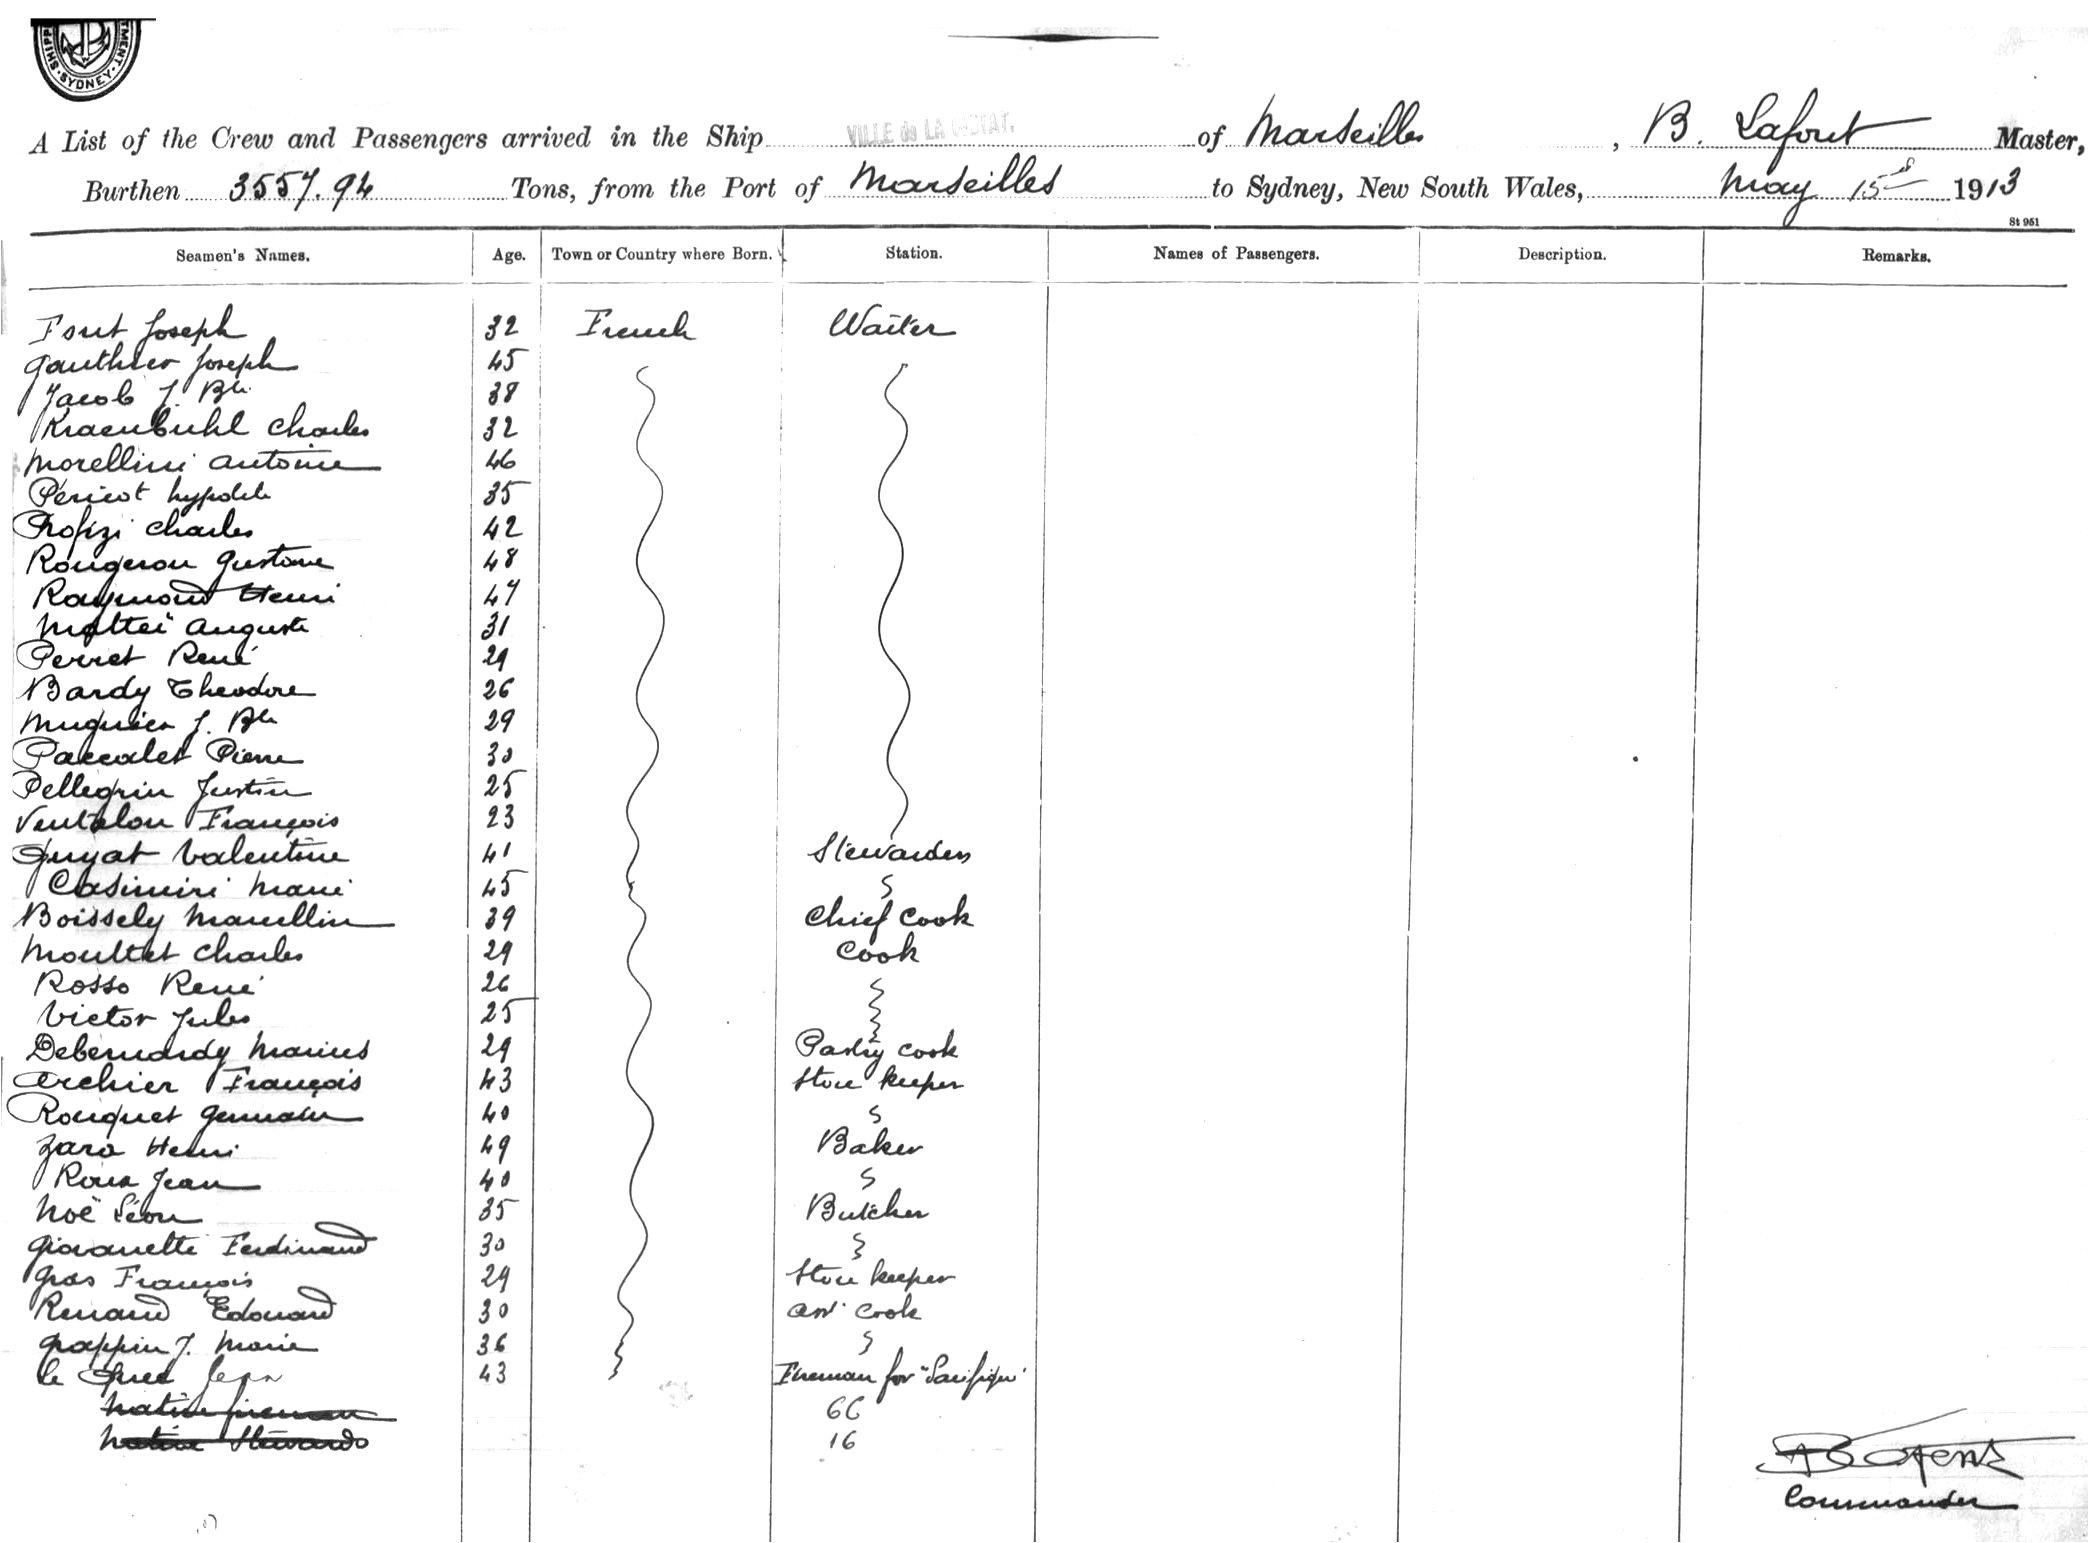 SYDNEY
A List of the Crew and Passengers arrived in the Ship VILLE de LA CIOTAT. of Marseilles, B. Lafont Master,
Burthen 3557.94 Tons, from the Port of Marseilles to Sydney, New South Wales, May 15th 1913
St 951
Seamen's Names. Age. Town or Country where Born. Station. Names of Passengers. Description. Remarks.
Font Joseph 32 French Waiter
Gauthier Joseph 45
Jacob J. Bte 38
Kraenbuhl Charles 32
Morellini Antoine 46
Péricot hypolite 35
Profizi Charles 42
Rougeron Gustave 48
Raymond Henri 47
Matteï Auguste 31
Perret René 29
Bardy Theodore 26
Muguier J. Bte 29
Paccalet Pierre 30
Pellegrin Justin 25
Ventalon François 23
Guyat Valentine 41 Stewardess
Casimiri Marie 45
Boissely Marcellin 39 Chief Cook
Moultet Charles 29 Cook
Rosso René 26
Victor Jules 25
Debernardy Marius 29 Pastry cook
Archier François 43 Store keeper
Rouquet Germain 40
Zara Henri 49 Baker
Roux Jean 40
Noë Léon 35 Butcher
Giovanetti Ferdinand 30
Gras François 29 Store keeper
Renaud Edouard 30 Ast Cook
Grappin J. Marie 36
Le Jean 43 Fireman for "Pacifique"
Native firemen 66
Native Stewards 16
Commander